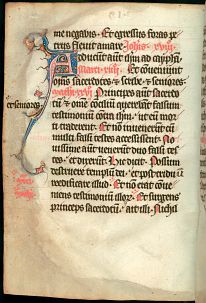 me negabis. Et egressus foras pe
trus fleuit amare Johis xviii
Adducūt autē ihm ad caypha
Marci xiiii Et conuenerūt
oēs sacerdotes et scribe et seniores
Mathi xxvi Principes autē sacerdo
et seniores
tū et omē consiliū querebāt falsum
testimoniū contra ihm ut eū mor
ti traderent Et nō inuenerūt cū
multi falsi testes accessissent No
uissime autē venerūt duo falsi tes
tes et dixerūt hic dixit Possum
destruere templū dei et post triduū
reedificare illud Et nō erat cōue
niens testimoniū illorū Et surgens
princeps sacerdotū ait illi Nichil